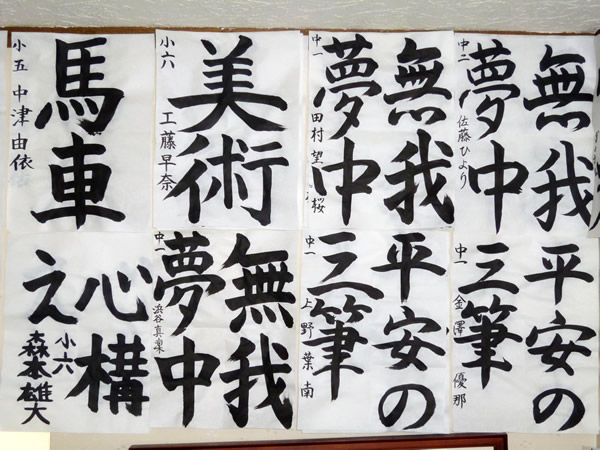 馬車
小五 中津由依
美術
小六 工藤早奈
無我
夢中
中一 田村望桜
無我
夢中
中二 佐藤ひより
心構
え
小六 森本雄大
無我
夢中
中一 浜谷真楽
平安の
三筆
中一 上野葉南
平安の
三筆
中一 金澤優那